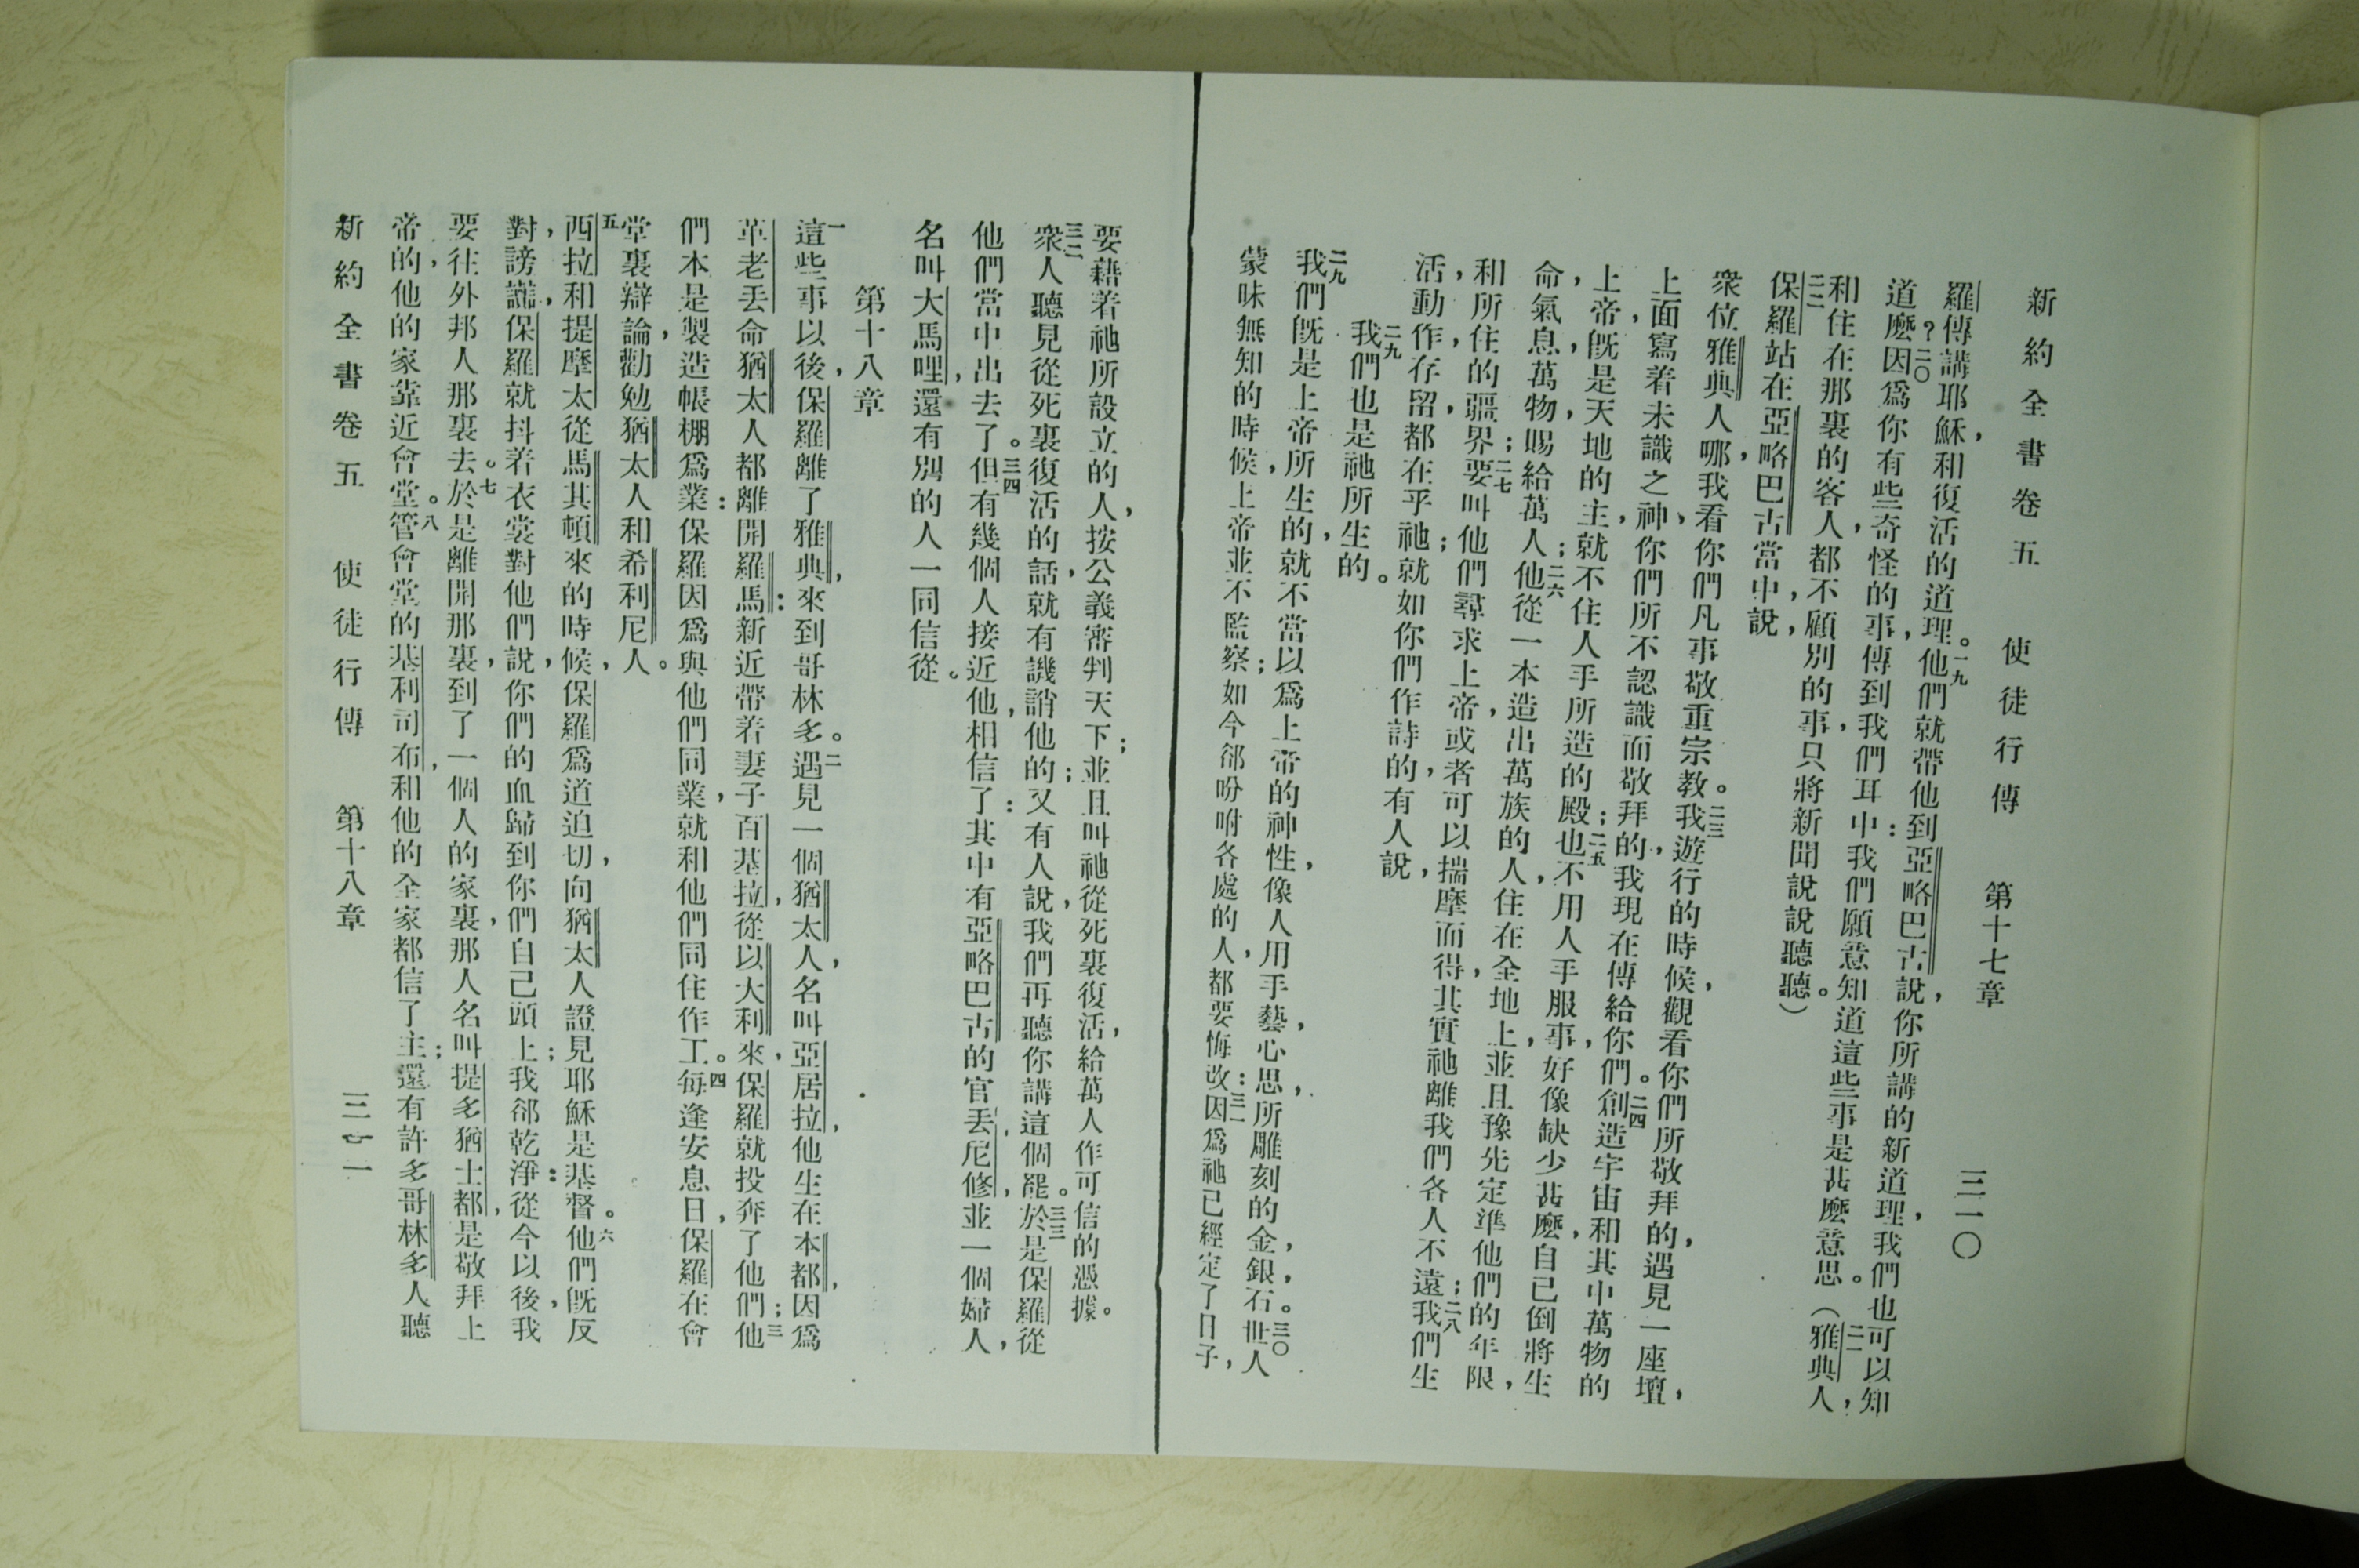 新約全書卷五 使徒行傳 第十七章 三一〇
羅傳講耶穌，和復活的道理。一九他們就帶他到亞略巴古說，你所講的新道理，我們也可以知
道麼？二〇因爲你有些奇怪的事，傳到我們耳中：我們願意知道這些事是甚麼意思。（二一雅典人，
和住在那裏的客人，都不顧別的事，只將新聞說說聽聽。）
二二保羅站在亞略巴古當中，說，
衆位雅典人哪，我看你們凡事敬重宗教。二三我遊行的時候，觀看你們所敬拜的，遇見一座壇，
上面寫着未識之神，你們所不認識而敬拜的，我現在傳給你們。二四創造宇宙和其中萬物的
上帝，旣是天地的主，就不住人手所造的殿；二五也不用人手服事，好像缺少甚麼，自己倒將生
命，氣息，萬物，賜給萬人；二六他從一本造出萬族的人，住在全地上，並且豫先定準他們的年限，
和所住的疆界；二七要叫他們尋求上帝，或者可以揣摩而得，其實祂離我們各人不遠；二八我們生
活，動作，存留，都在乎祂；就如你們作詩的，有人說，
二九我們也是祂所生的。
二九我們旣是上帝所生的，就不當以爲上帝的神性，像人用手藝，心思，所雕刻的金，銀，石。三〇世人
蒙昧無知的時候，上帝並不監察；如今卻吩咐各處的人，都要悔改：三一因爲祂已經定了日子，
要藉着祂所設立的人，按公義審判天下；並且叫祂從死裏復活，給萬人作可信的憑據。
三二衆人聽見從死裏復活的話，就有譏誚他的；又有人說，我們再聽你講這個罷。三三於是保羅從
他們當中出去了。三四但有幾個人接近他，相信了：其中有亞略巴古的官丟尼修，並一個婦人，
名叫大馬哩，還有別的人一同信從。
第十八章
一這些事以後，保羅離了雅典，來到哥林多。二遇見一個猶太人，名叫亞居拉，他生在本都，因爲
革老丟命猶太人都離開羅馬：新近帶着妻子百基拉，從以大利來，保羅就投奔了他們；三他
們本是製造帳棚爲業：保羅因爲與他們同業，就和他們同住作工。四每逢安息日，保羅在會
堂裏辯論，勸勉猶太人和希利尼人。
五西拉和提摩太從馬其頓來的時候，保羅爲道迫切，向猶太人證見耶穌是基督。六他們旣反
對，謗讟，保羅就抖着衣裳對他們說，你們的血歸到你們自己頭上；我卻乾淨：從今以後，我
要往外邦人那裏去。七於是離開那裏，到了一個人的家裏，那人名叫提多猶士都，是敬拜上
帝的，他的家靠近會堂。八管會堂的基利司布，和他的全家都信了主；還有許多哥林多人聽
新約全書卷五 使徒行傳 第十八章 三一一